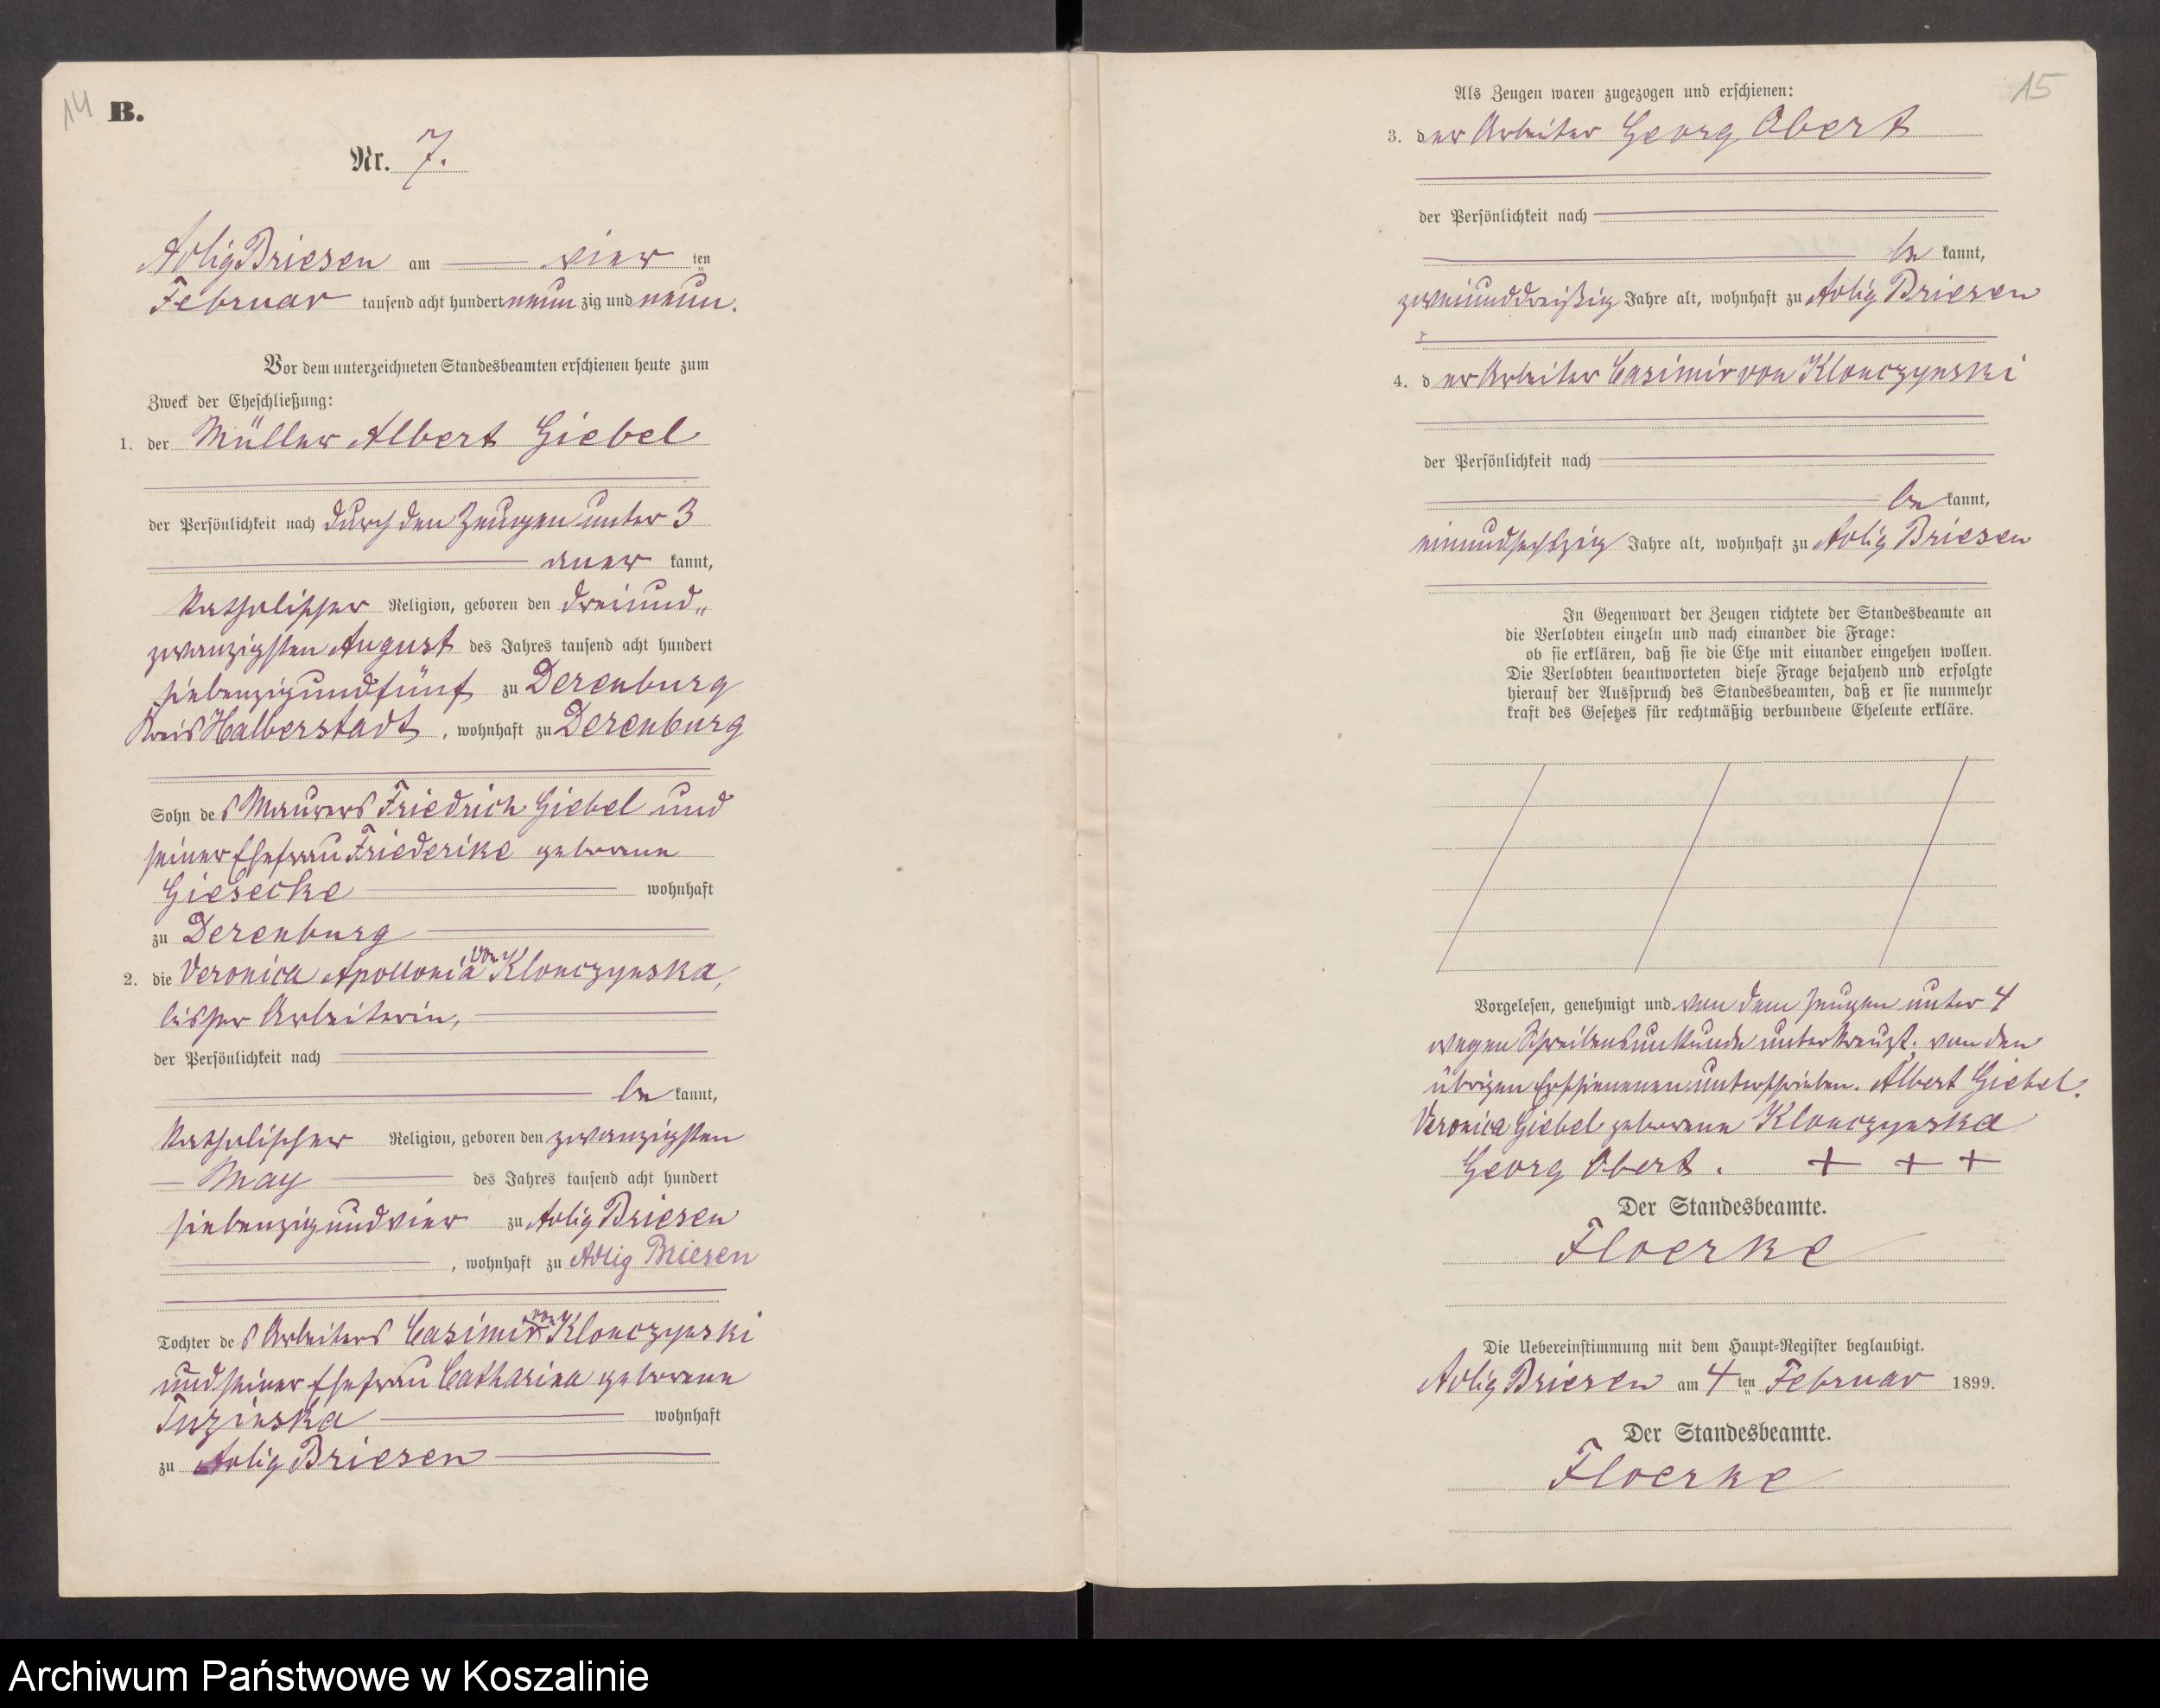 14 B.
Nr. 7.
Adlig Briesen am vier ten
Februar tausend acht hundert neun zig und neun.
Vor dem unterzeichneten Standesbeamten erschienen heute zum
Zweck der Eheschließung:
1. der Müller Albert Giebel
der Persönlichkeit nach durch den Zeugen unter 3
aner kannt,
katholischer Religion, geboren den dreiund„
zwanzigsten August des Jahres tausend acht hundert
siebenzigundfünf zu Derenburg
Kreis Halberstadt, wohnhaft zu Derenburg
Sohn des Maurers Friedrich Giebel und
seiner Ehefrau Friederike geborene
Giesecke wohnhaft
zu Derenburg
2. die Veronica Apollonia von Klonczynska,
bisher Arbeiterin,
der Persönlichkeit nach
be kannt,
katholischer Religion, geboren den zwanzigsten
May des Jahres tausend acht hundert
siebenzigundvier zu Adlig Briesen
, wohnhaft zu Adlig Briesen
Tochter des Arbeiters Casimir von Klonczynski
und seiner Ehefrau Catharina geborene
Tuzinska wohnhaft
zu Adlig Briesen
15
Als Zeugen waren zugezogen und erschienen:
3. der Arbeiter Georg Obert
der Persönlichkeit nach
be kannt,
zweiunddreißig Jahre alt, wohnhaft zu Adlig Briesen
4. der Arbeiter Casimir von Klonczynski
der Persönlichkeit nach
be kannt,
einundsechszig Jahre alt, wohnhaft zu Adlig Briesen
In Gegenwart der Zeugen richtete der Standesbeamte an
die Verlobten einzeln und nach einander die Frage:
ob sie erklären, daß sie die Ehe mit einander eingehen wollen.
Die Verlobten beantworteten diese Frage bejahend und erfolgte
hierauf der Ausspruch des Standesbeamten, daß er sie nunmehr
kraft des Gesetzes für rechtmäßig verbundene Eheleute erkläre.
Vorgelesen, genehmigt und von dem Zeugen unter 4
wegen Schreibensunkunde unterkreuzt, von den
übrigen Erschienenen unterschrieben. Albert Giebel.
Veronica Giebel geborene Klonczynska
Georg Obert. + + +
Der Standesbeamte.
Floerke
Die Uebereinstimmung mit dem Haupt-Register beglaubigt.
Adlig Briesen am 4 ten Februar 1899.
Der Standesbeamte.
Floerke
Archiwum Państwowe w Koszalinie